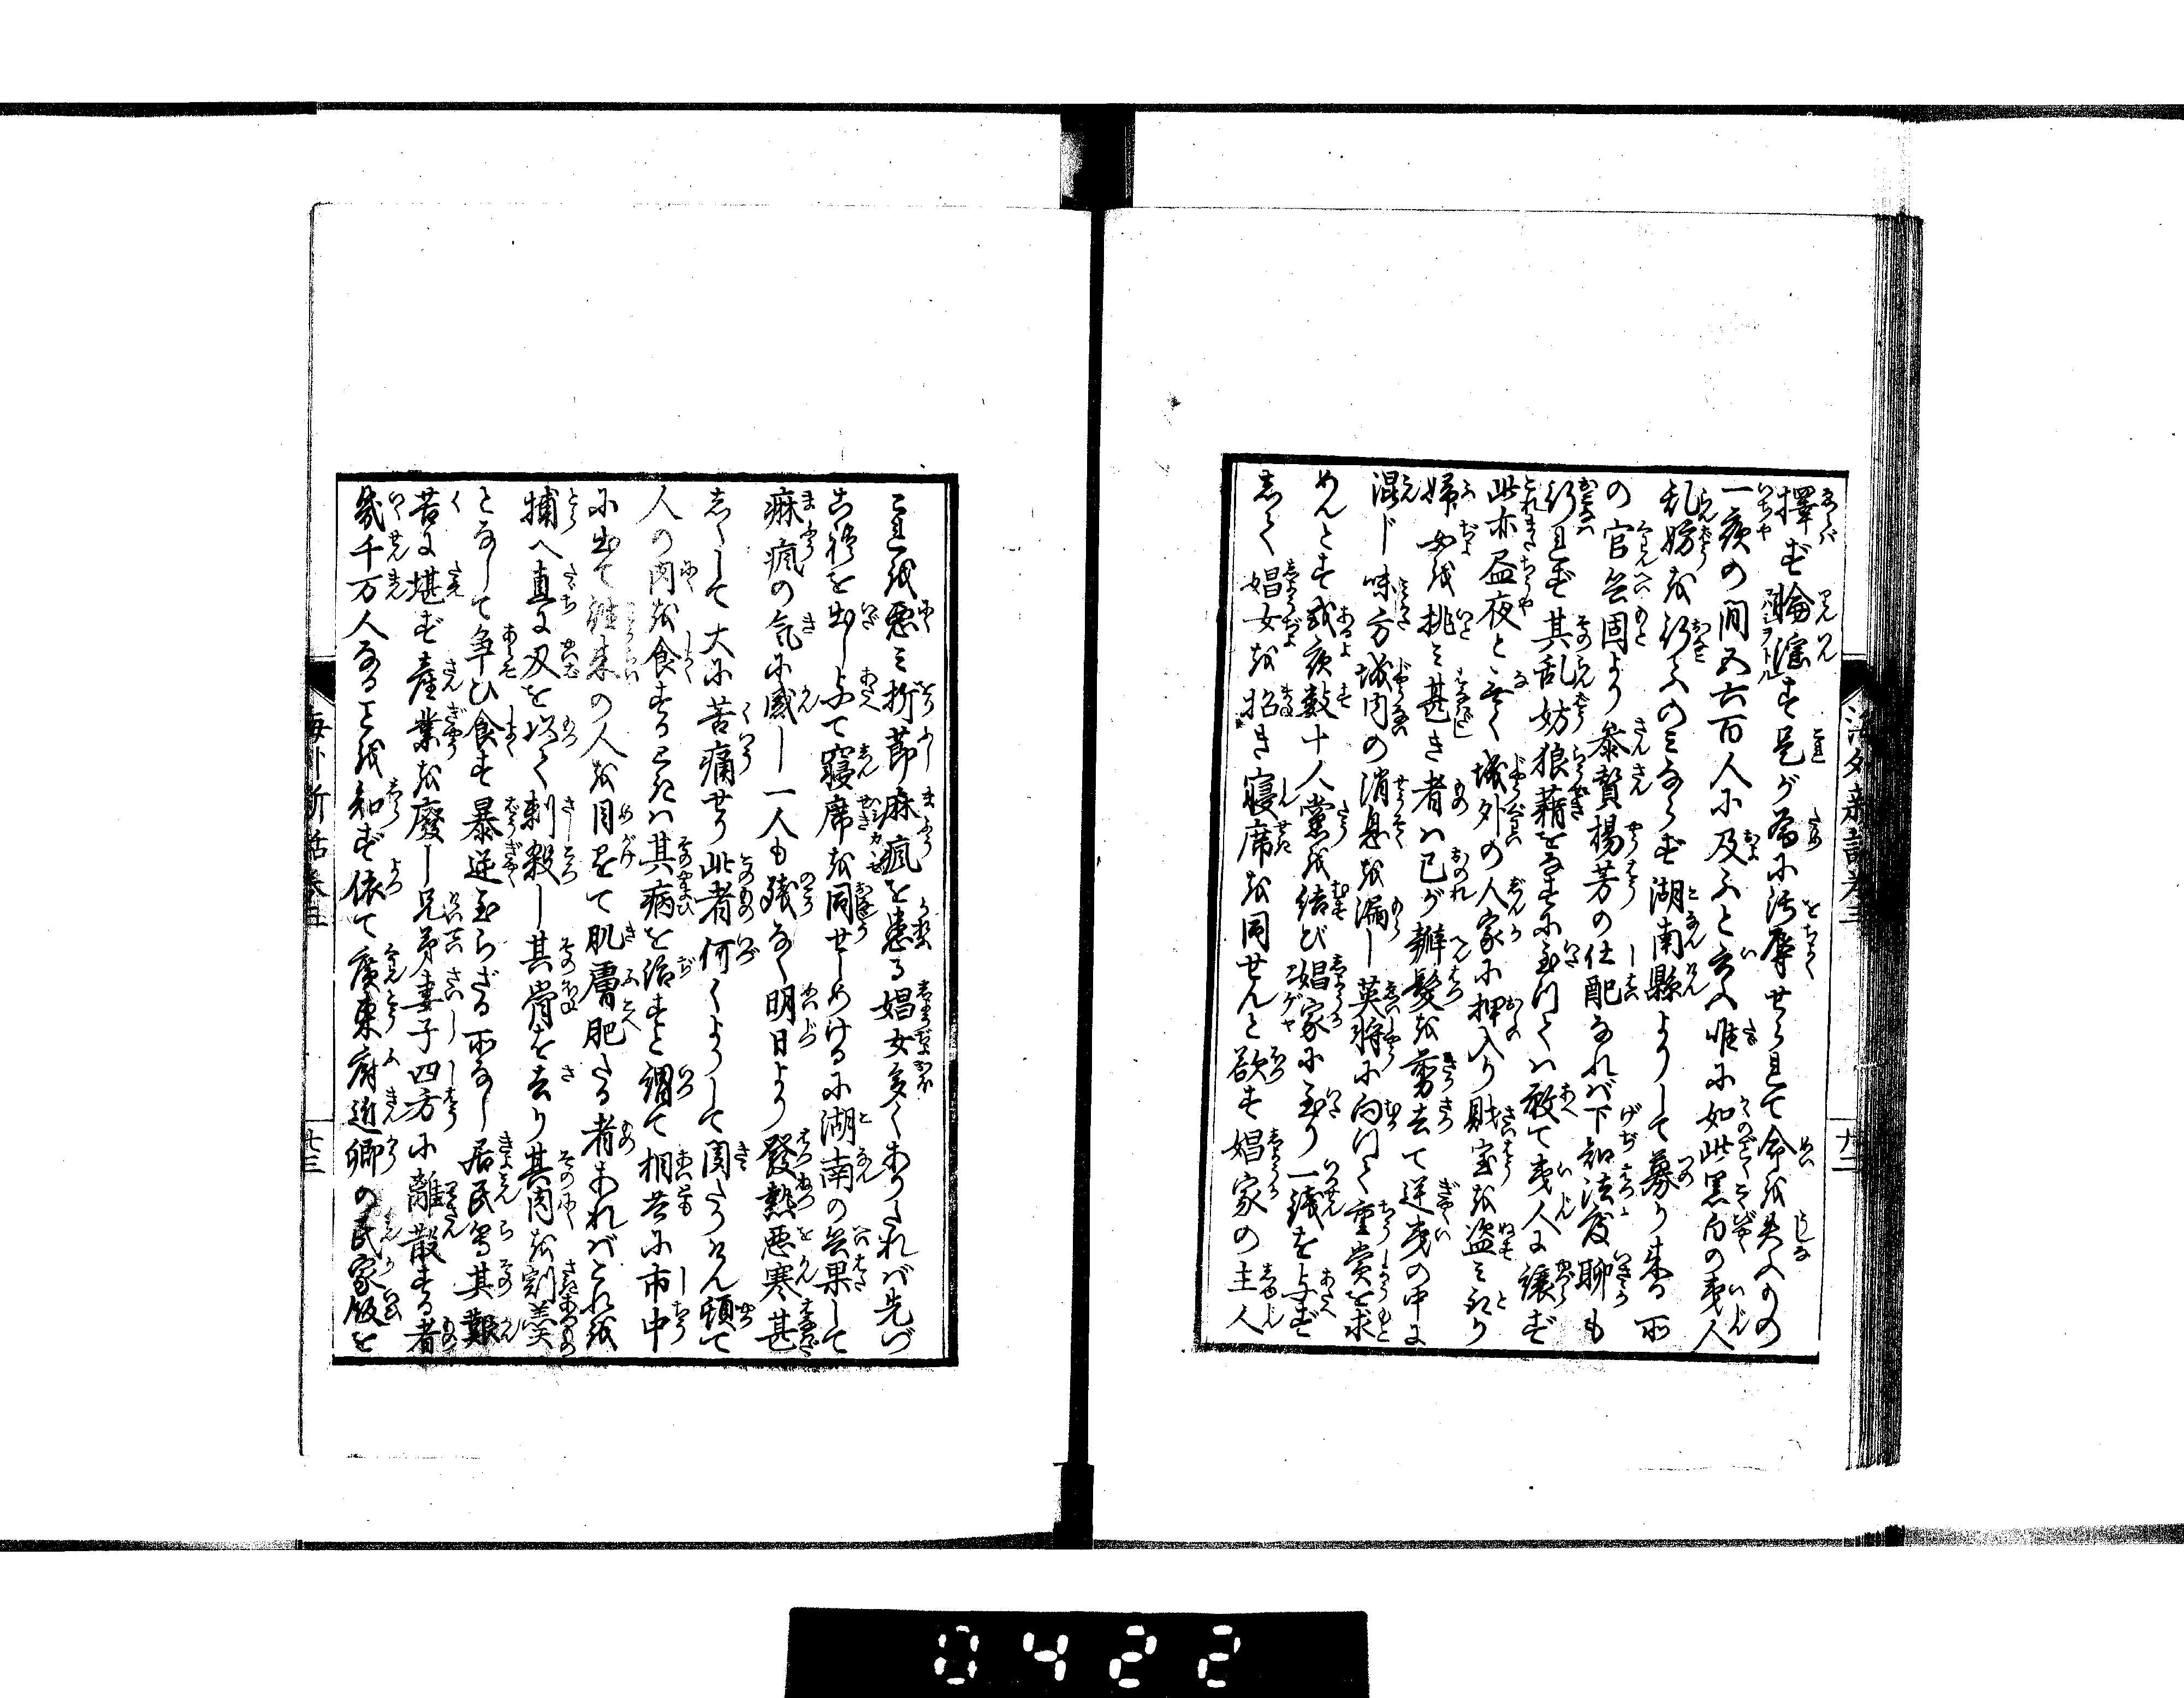 擇ばず輪滛す是が為に汚辱せられて命を失ふもの
一夜の間五六百人に及ぶと云ふ唯に如此黒白の夷人
乱妨を行ふのみならず湖南縣よりして募り来る所
の官兵固より参賛楊芳の仕配なれば下知法度聊も
行れず其乱妨狼藉をなすに至つては敢て夷人に譲ず
此亦昼夜となく城外の人家に押入り財宝を盗み取り
婦女を挑み甚き者は已が辮髪を剪去て逆夷の中に
混じ味方城内の消息を漏し英将に向つて重賞を求
めんとす或夜数十人黨を結び娼家に至り一銭を与ず
して娼女を招き寝席を同せんと欲す娼家の主人
これを悪み折節麻瘋を患る娼女多くありたれば先づ
を出し与て寝席を同せしめけるに湖南の兵果して
麻瘋の気に感し一人も残なく明日より發熱悪寒甚
しくして大に苦痛せり此者何くよりして聞たりけん頓て
人の肉を食する時は其病を治すと謂て相共に市中
に出て往来の人を目がけて肌膚肥たる者あればこれを
捕へ直に刃を以て刺殺し其骨を去り其肉を割羹
となして争ひ食す暴逆至らざる所なし居民等其艱
苦に堪ず産業を廢し兄弟妻子四方に離散する者
幾千万人なることを知ず依て廣東府近郷の民家飯を
海外新話巻三
廿二
海外新話巻三
廿三
0422